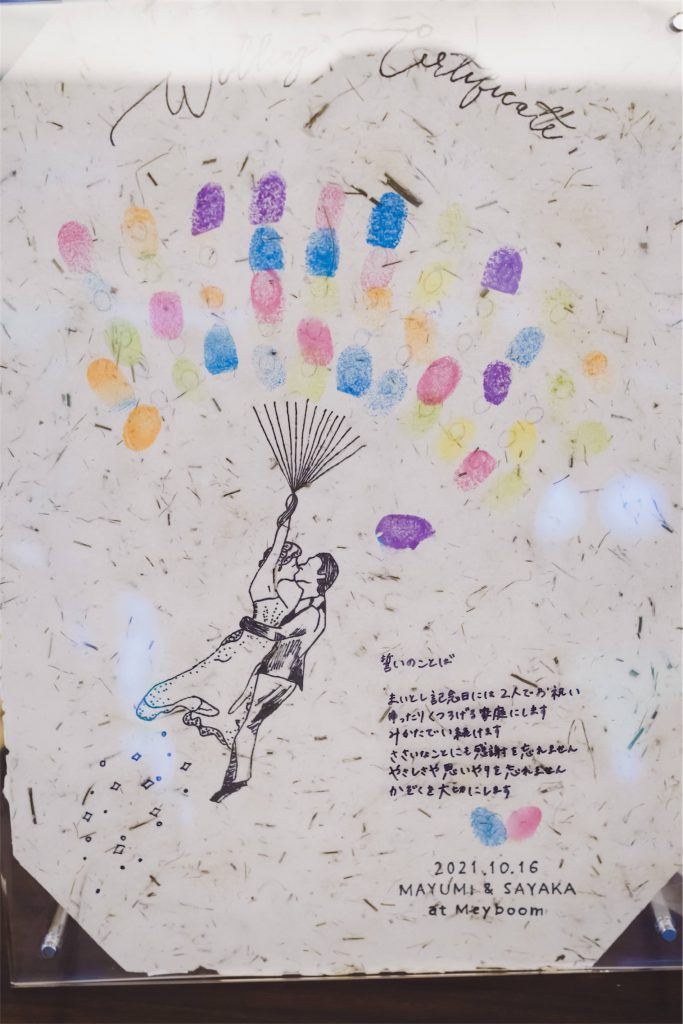 Wedding Certificate
誓いのことば
まいとし記念日には2人でお祝い
ゆったりくつろげる家庭にします
みかたでい続けます
ささいなことにも感謝を忘れません
やさしさや思いやりを忘れません
かぞくを大切にします
2021.10.16
MAYUMI & SAYAKA
at Meyboom